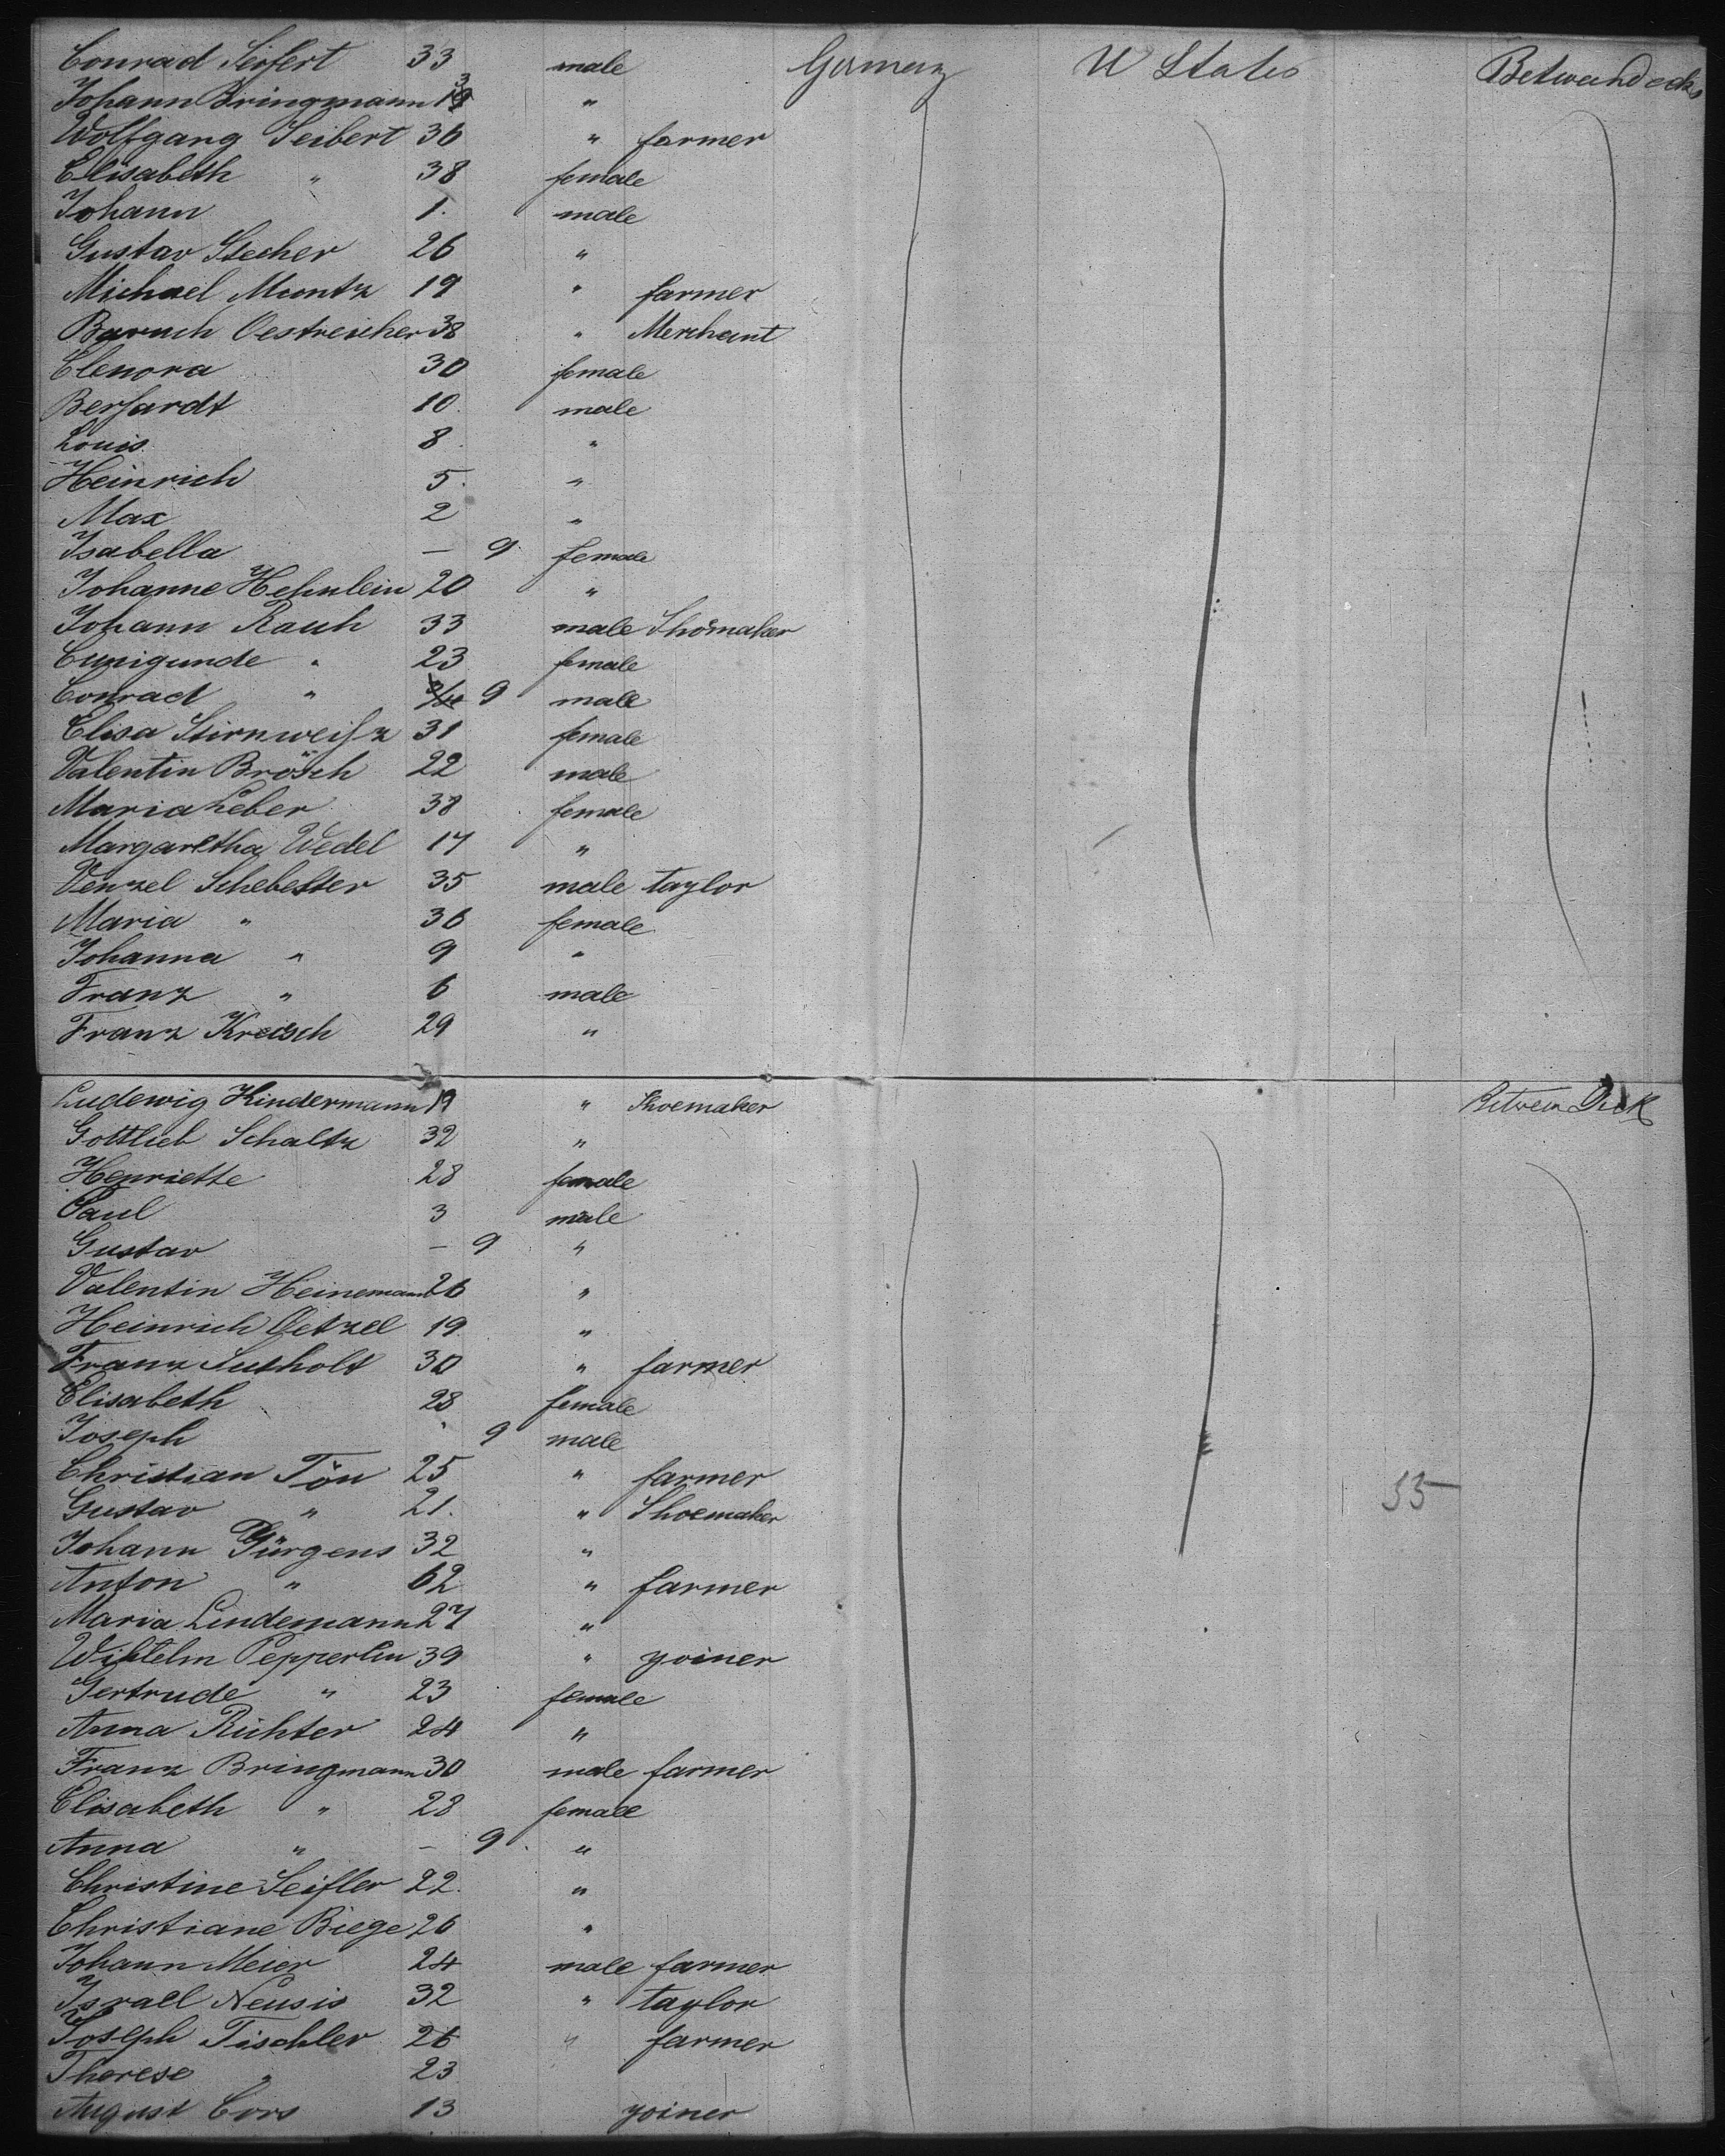 Conrad Seifert 33 male Germany U States Betweendecks
Johann Bringmann 19 "
Wolfgang Seibert 36 " farmer
Elisabeth " 38 female
Johann 1. male
Gustav Stecher 26 "
Michael Muntz 19 " farmer
Baruch Oestreicher 38 " Merchant
Elenora 30 female
Berhardt 10. male
Louis 8. "
Heinrich 5. "
Max 2 "
Isabella — 9. female
Johanne Hehnlein 20 "
Johann Rauh 33 male Shomaker
Cunigunde " 23 female
Conrad " 9 male
Elisa Stirnweihz 31 female
Valentin Brösch 22 male
Maria Leber 38 female
Margaretha Wedel 17 "
Venzel Schebester 35 male taylor
Maria " 36 female
Johanna " 9 "
Franz " 6 male
Franz Kreisch 29 "
Ludewig Kindermann 19 " Shoemaker Between Deck
Gottlieb Schaltz 32 "
Henriette 28 female
Paul 3 male
Gustav — 9 "
Valentin Heinemann 26 "
Heinrich Oetzel 19 "
Franz Sutholt 30 " farmer
Elisabeth 28 female
Joseph " 9 male
Christian Tön 25 " farmer
Gustav " 21. " Shoemaker 55
Johann Gürgens 32 "
Anton " 62 " farmer
Maria Lindemann 27 "
Wihlelm Pepperlin 39 " yoiner
Gertrude " 23 female
Anna Richter 24 "
Franz Bringmann 30 male farmer
Elisabeth " 28 female
Anna " — 9. "
Christine Seifler 22. "
Christiane Biege 26 "
Johann Meier 24 male farmer
Israel Neusis 32 " taylor
Joseph Tischler 26 " farmer
Therese " 23
August Cors 13 yoiner